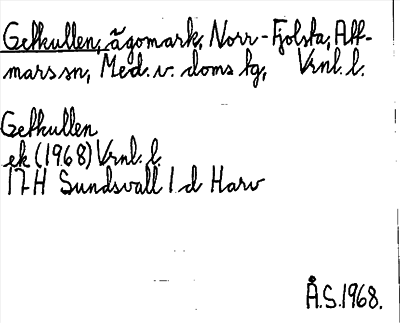 Getkullen, ägomark, Norr-Fjolsta, Att-
marssn, Med. v. doms tg, Vrnl. l.
Getkullen
ek (1968) Vrnl. l.
17H Sundsvall 1 d Harv
Å.S. 1968.